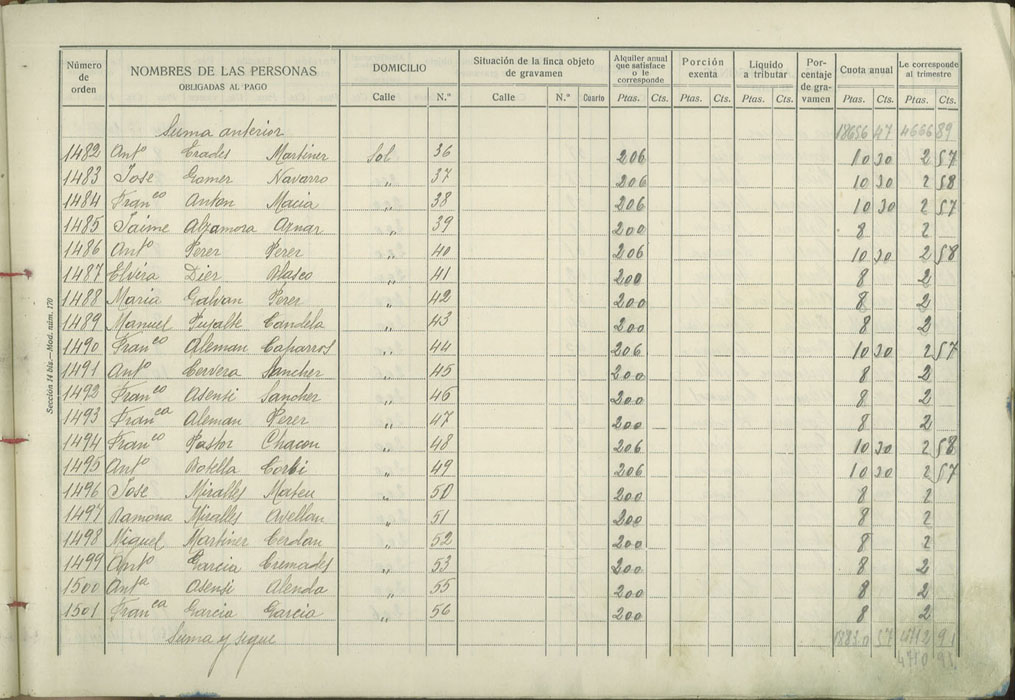 Número de orden | NOMBRES DE LAS PERSONAS OBLIGADAS AL PAGO | DOMICILIO | Situación de la finca objeto de gravamen | Alquiler anual que satisface o le corresponde | Porción exenta | Líquido a tributar | Porcentaje de gravamen | Cuota anual | Le corresponde al trimestre
Calle | N.º | Calle | N.º | Cuarto | Ptas. | Cts. | Ptas. | Cts. | Ptas. | Cts. | Ptas. | Cts. | Ptas. | Cts.
Suma anterior 18656 47 4666 89
1482 Antº Erades Martinez Sol 36 206 10 30 2 57
1483 Jose Gomez Navarro " 37 206 10 30 2 58
1484 Franco Anton Macia " 38 206 10 30 2 57
1485 Jaime Alzamora Aznar " 39 200 8 2
1486 Antº Perez Perez " 40 206 10 30 2 58
1487 Elvira Diez Blasco " 41 200 8 2
1488 Maria Galvan Perez " 42 200 8 2
1489 Manuel Pujalte Candela " 43 200 8 2
1490 Franco Aleman Caparros " 44 206 10 30 2 57
1491 Antº Cervera Sanchez " 45 200 8 2
1492 Franco Asensi Sanchez " 46 200 8 2
1493 Franca Aleman Perez " 47 200 8 2
1494 Franco Pastor Chacon " 48 206 10 30 2 58
1495 Antº Botella Corbi " 49 206 10 30 2 57
1496 Jose Miralles Mateu " 50 200 8 2
1497 Ramona Miralles Avellan " 51 200 8 2
1498 Miguel Martinez Cerdan " 52 200 8 2
1499 Antº Garcia Cremades " 53 200 8 2
1500 Antª Asensi Alenda " 55 200 8 2
1501 Franca Garcia Garcia " 56 200 8 2
Suma y sigue
Sección 14 bis.—Mod. núm. 170